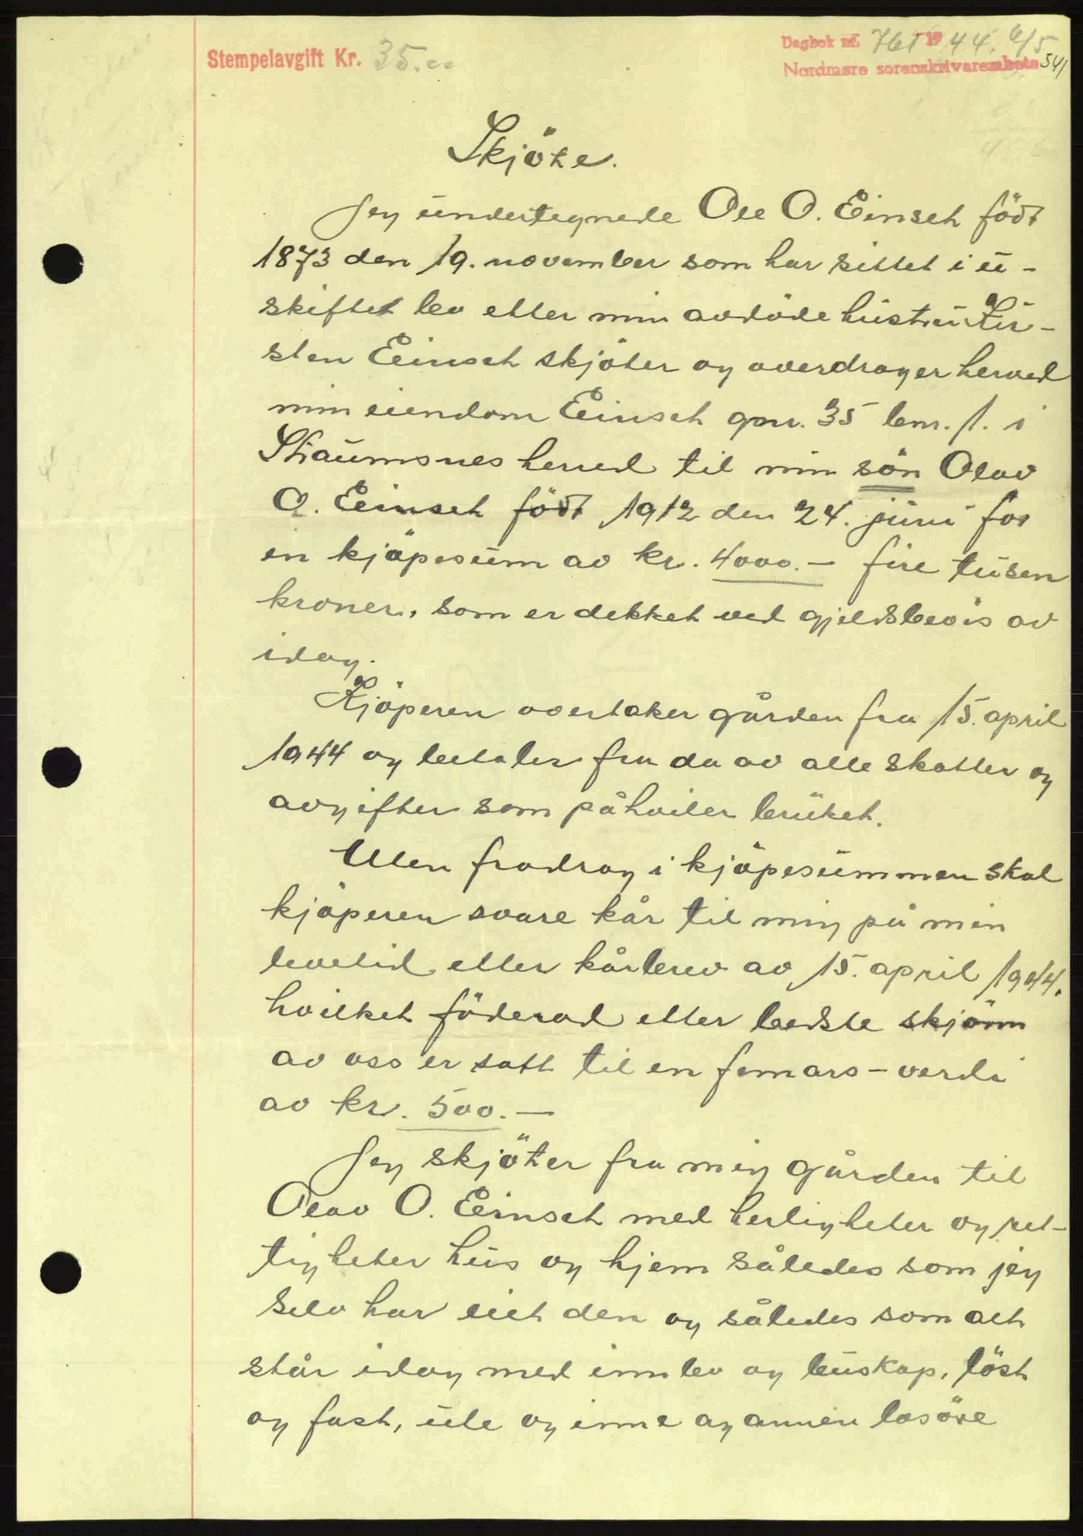 Stempelavgift Kr. 35.00
Dagbok nr. 761 1944. 6/5
Nordmøre sorenskriverembete
541
Skjöte.
Jeg undertegnede Ole O. Einset födt
1873 den 19. november som har sittet i u-
skiftet bo etter min avdöde hustru Kir-
sten Einset skjöter og overdrager herved
min eiendom Einset gnr. 35 bnr. 1. i
Straumsnes herred til min sön Olav
O. Einset födt 1912 den 24. juni for
en kjöpesum av kr. 4000.- fire tusen
kroner, som er dekket ved gjeldsbevis av
idag.
Kjöperen overtaker gården fra 15. april
1944 og betaler fra da av alle skatter og
avgifter som påhviler bruket.
Uten fradrag i kjöpesummen skal
kjöperen svare kår til mig på min
levetid etter kårbrev av 15. april 1944.
hvilket föderåd etter bedste skjönn
av oss er satt til en femårs-verdi
av kr. 500.-
Jeg skjöter fra mig gården til
Olav O. Einset med herligheter og ret-
tigheter hus og hjem således som jeg
selv har eiet den og således som alt
står idag med innbo og buskap, löst
og fast, ute og inne og annen lösöre